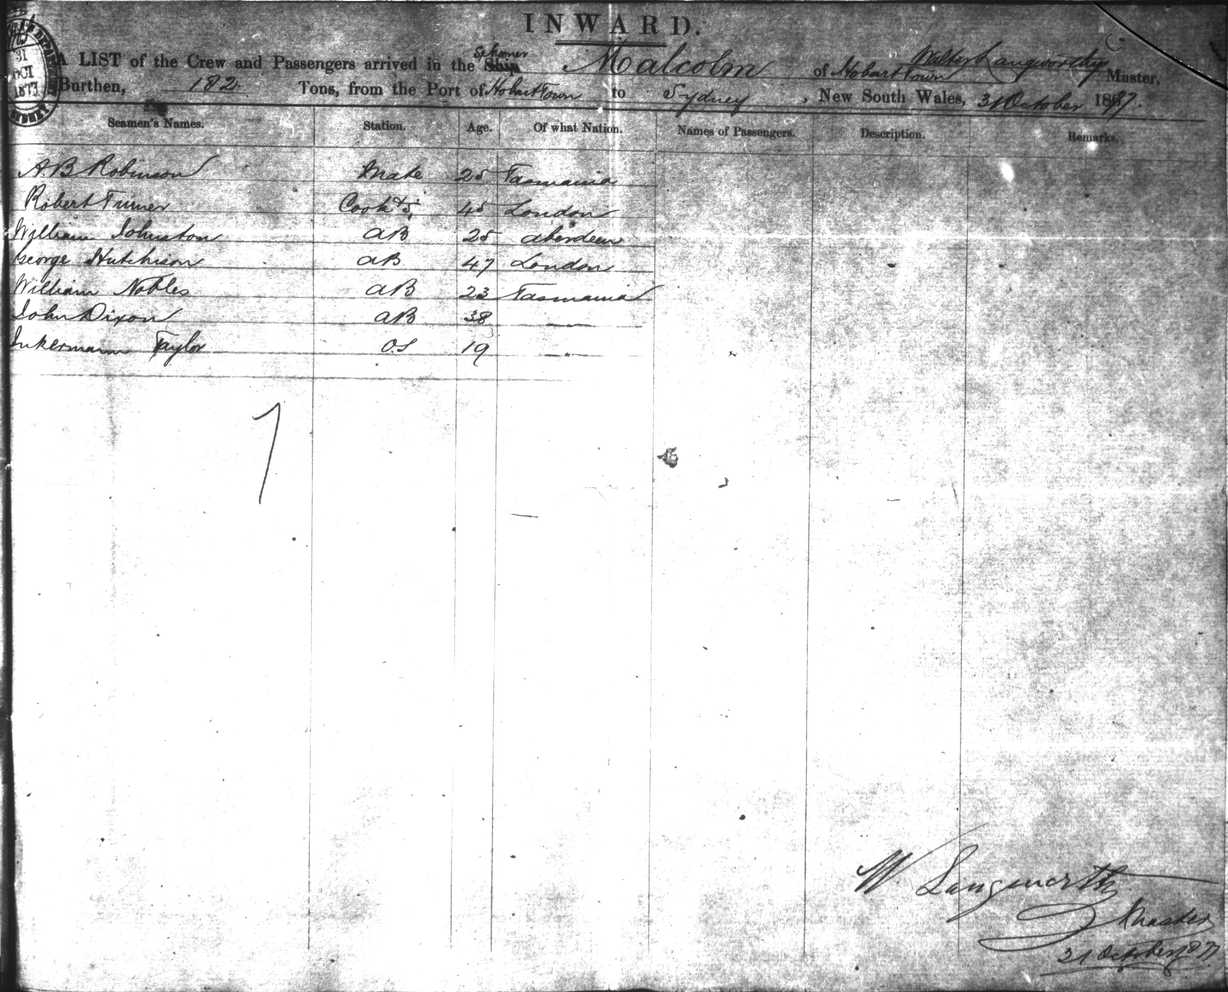 INWARD.
A LIST of the Crew and Passengers arrived in the Ship Schooner Malcolm of Hobart Town Walter Langworthy Master,
Burthen, 182 Tons, from the Port of Hobart Town to Sydney, New South Wales, 31 October 1877.
31
OCT
1877
Seamen's Names. Station. Age. Of what Nation. Names of Passengers. Description. Remarks.
A.B Robinson Mate 25 Tasmania
Robert Turner Cook & S, 45 London
William Johnston AB 25 Aberdeen
George Hutchison AB 47 London
William Nobles AB 23 Tasmania
John Dixon AB 38 —
Inkermann Taylor OS 19 —
7
W. Langworthy
Master
31 October 1877